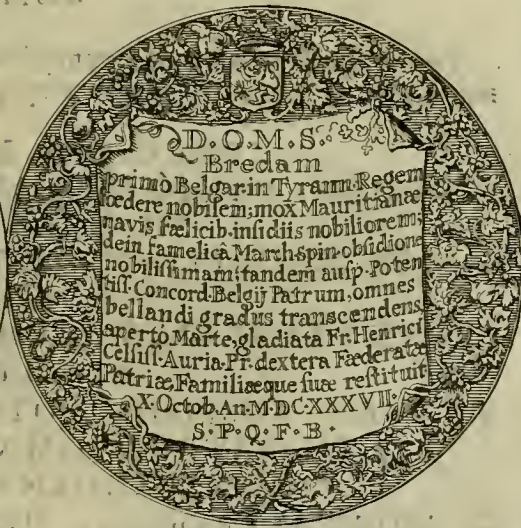 D.O.M.S.
Bredam
primò Belgar.in Tyrann.Regem
fœdere nobilem; mox Mauritianæ
navis fælicib.insidiis nobiliorem;
dein famelicâ March.Spin.obsidione
nobilissimam; tandem ausp.Poten
tiss.Concord.Belgij Patrum, omnes
bellandi gradus transcendens
aperto Marte, gladiata Fr.Henrici
Celsiss.Auria.Pr.dextera Fæderatæ
Patriæ,Familiæque suæ restituit
X.Octob.An.M.DC.XXXVII.
S.P.Q.F.B.